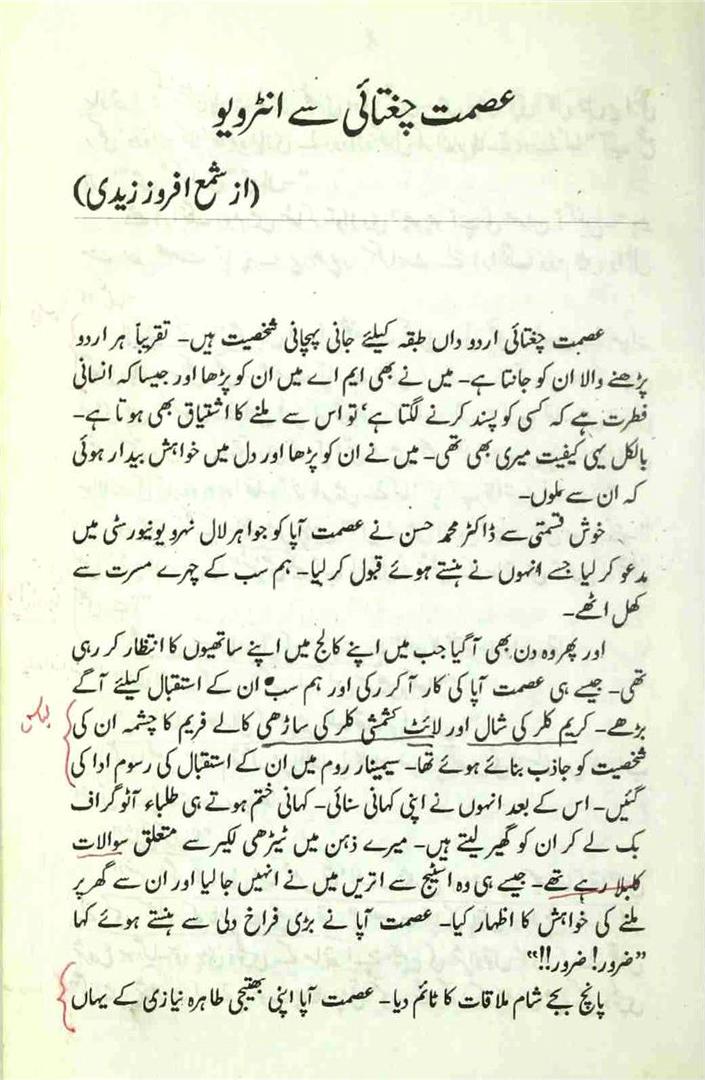 عصمت چغتائی سے انٹرویو
(از شمع افروز زیدی)
عصمت چغتائی اردو داں طبقہ کیلئے جانی پہچانی شخصیت ہیں۔ تقریباً ہر اردو
پڑھنے والا ان کو جانتا ہے۔ میں نے بھی ایم اے میں ان کو پڑھا اور جیسا کہ انسانی
فطرت ہے کہ کسی کو پسند کرنے لگتا ہے، تو اس سے ملنے کا اشتیاق بھی ہوتا ہے۔
بالکل یہی کیفیت میری بھی تھی۔ میں نے ان کو پڑھا اور دل میں خواہش بیدار ہوئی
کہ ان سے ملوں۔
خوش قسمتی سے ڈاکٹر محمد حسن نے عصمت آپا کو جواہر لال نہرو یونیورسٹی میں
مدعو کر لیا جسے انہوں نے ہنستے ہوئے قبول کر لیا۔ ہم سب کے چہرے مسرت سے
کھل اٹھے۔
اور پھر وہ دن بھی آ گیا جب میں اپنے کالج میں اپنے ساتھیوں کا انتظار کر رہی
تھی۔ جیسے ہی عصمت آپا کی کار آ کر رکی اور ہم سب ان کے استقبال کیلئے آگے
بڑھے۔ کریم کلر کی شال اور لائٹ کشمشی کلر کی ساڑھی کالے فریم کا چشمہ ان کی
لباس
شخصیت کو جاذب بنائے ہوئے تھا۔ سیمینار روم میں ان کے استقبال کی رسوم ادا کی
گئیں۔ اس کے بعد انہوں نے اپنی کہانی سنائی۔ کہانی ختم ہوتے ہی طلباء آٹوگراف
بک لے کر ان کو گھیر لیتے ہیں۔ میرے ذہن میں ٹیڑھی لکیر سے متعلق سوالات
کلبلا رہے تھے۔ جیسے ہی وہ اسٹیج سے اتریں میں نے انہیں جا لیا اور ان سے گھر پر
ملنے کی خواہش کا اظہار کیا۔ عصمت آپا نے بڑی فراخ دلی سے ہنستے ہوئے کہا
”ضرور! ضرور!!“
پانچ بجے شام ملاقات کا ٹائم دیا۔ عصمت آپا اپنی بھتیجی طاہرہ نیازی کے یہاں